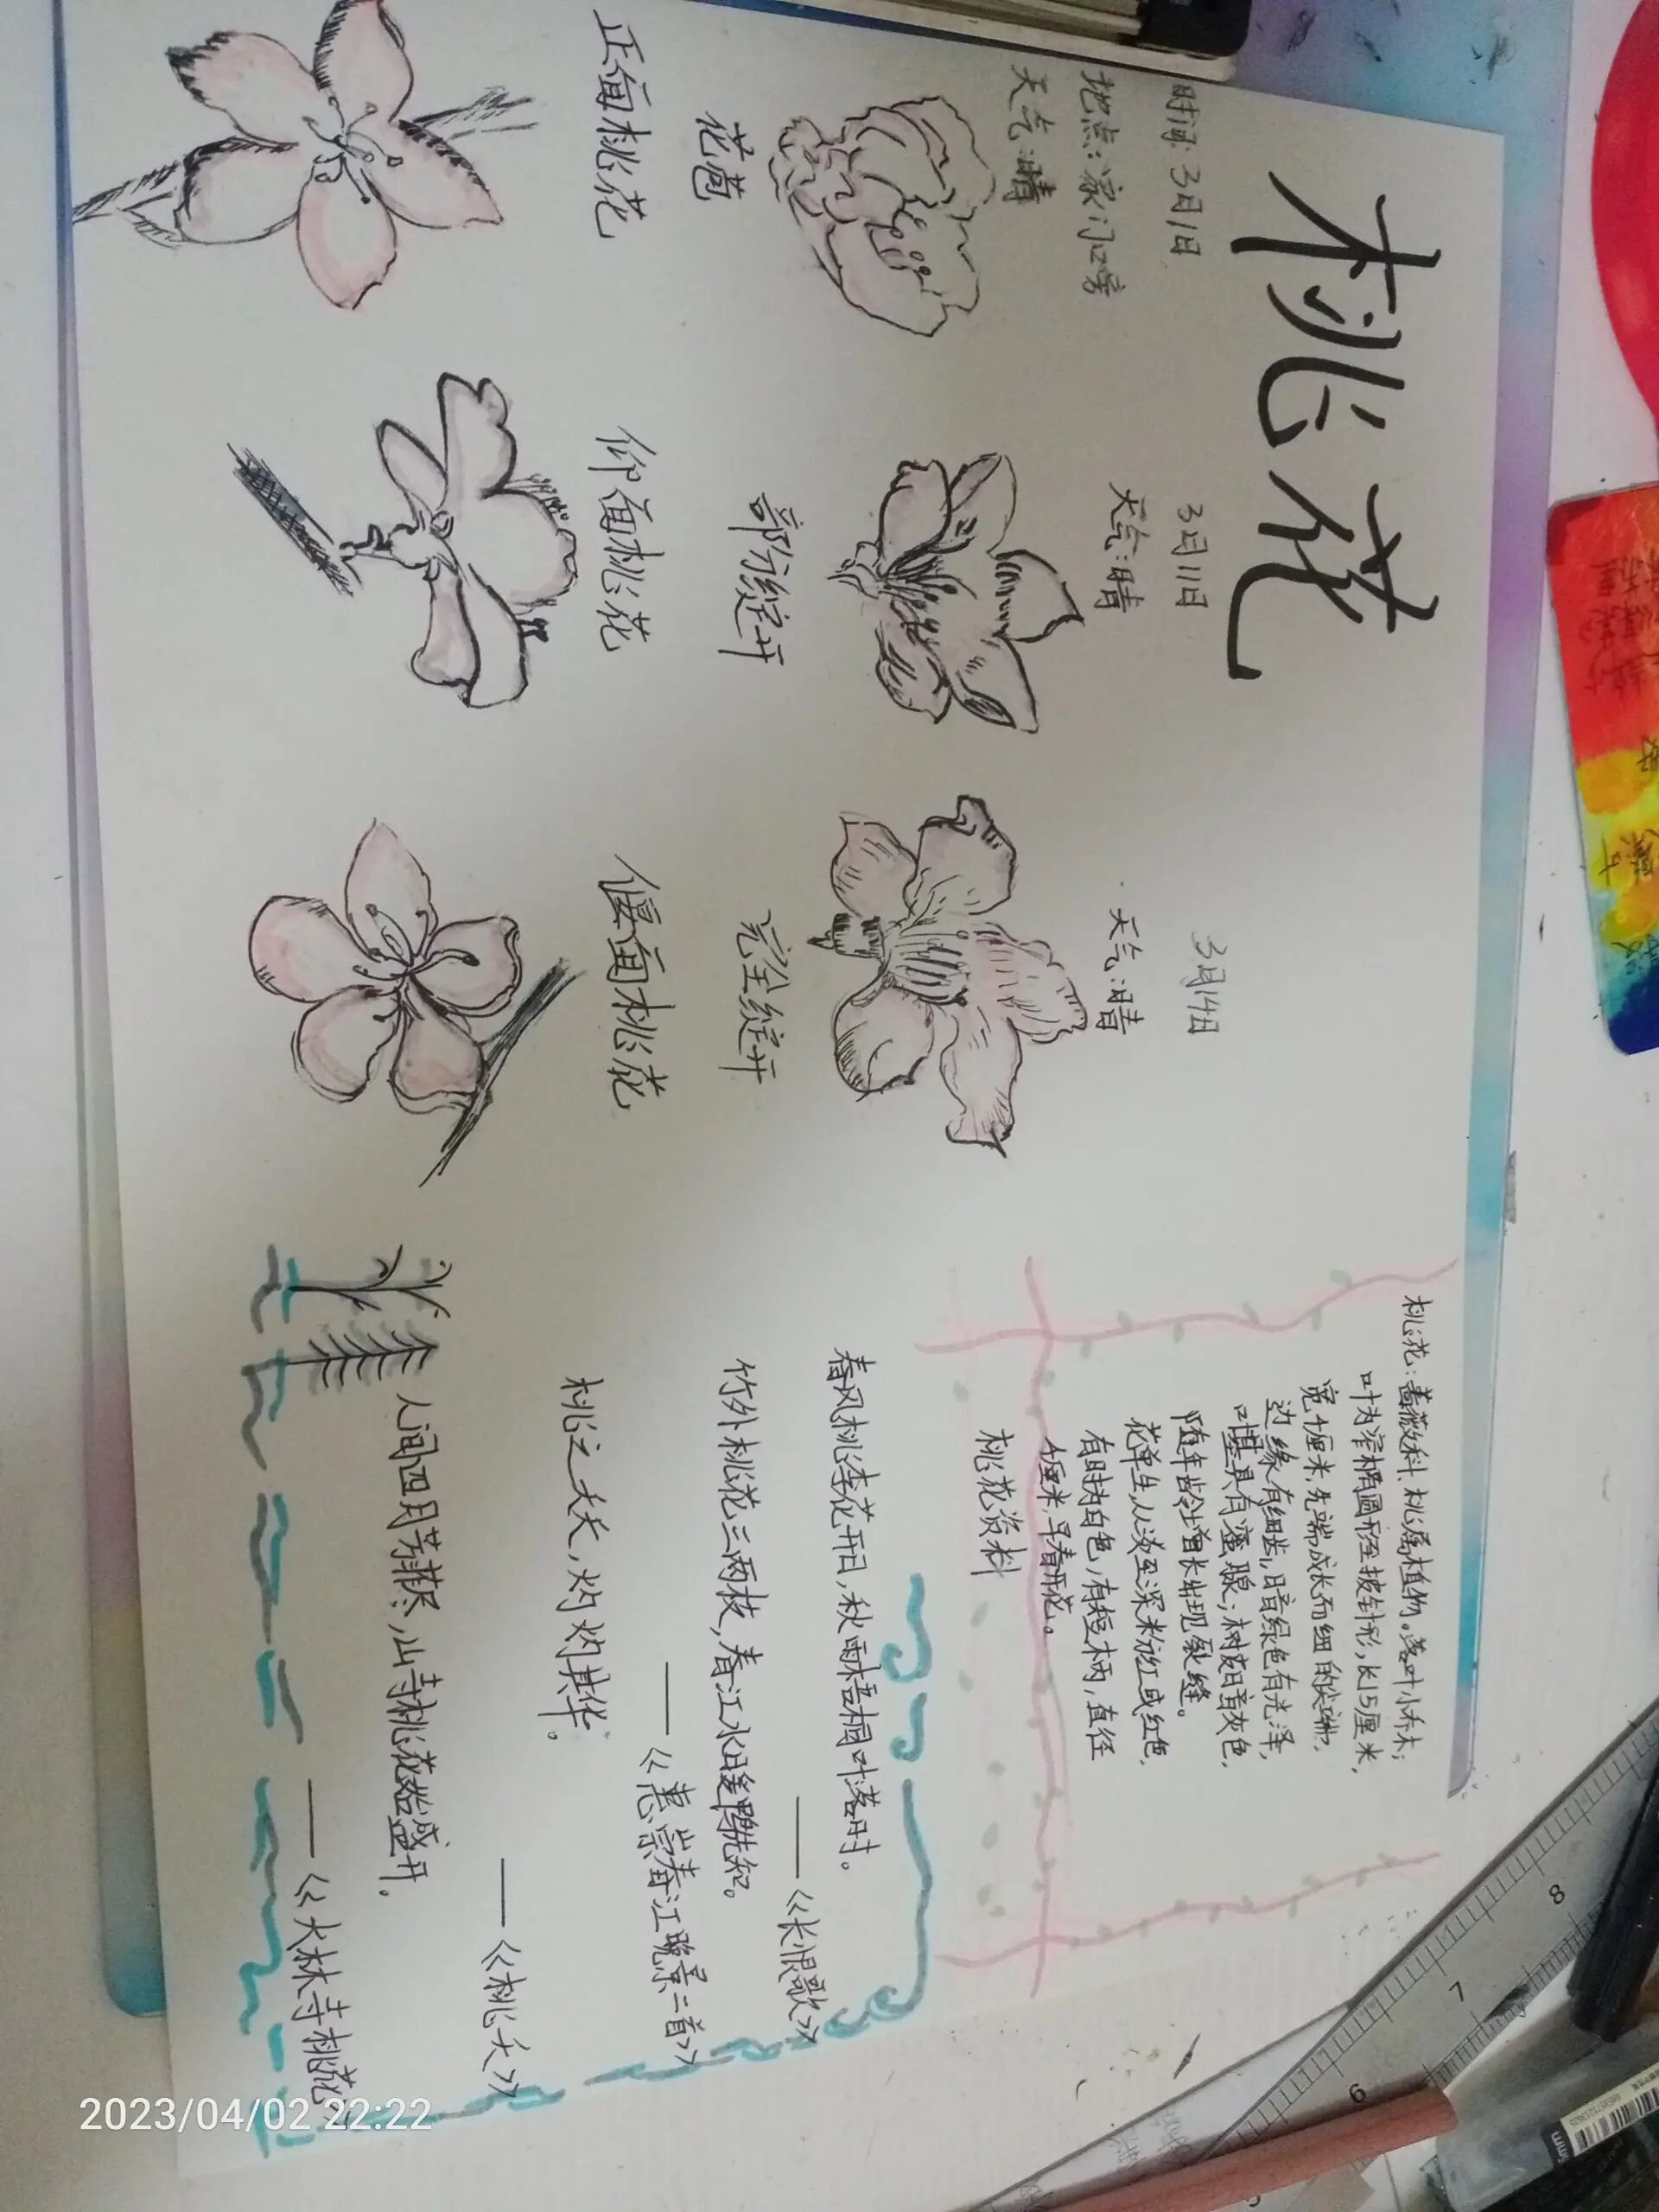 桃花
时间：3月1日
地点：家门口旁
天气：晴
花苞
3月11日
天气：晴
部分绽开
3月14日
天气：晴
完全绽开
正面桃花
仰面桃花
偃面桃花
桃花：蔷薇科、桃属植物。落叶小乔木；
叶为窄椭圆形至披针形，长15厘米，
宽4厘米，先端成长而细的尖端，
边缘有细齿，暗绿色有光泽，
叶基具有蜜腺；树皮暗灰色，
随年龄增长出现裂缝。
花单生，从淡至深粉红或红色，
有时为白色，有短柄，直径
4厘米，早春开花。
桃花资料
春风桃李花开日，秋雨梧桐叶落时。
——《长恨歌》
竹外桃花三两枝，春江水暖鸭先知。
——《惠崇春江晚景二首》
桃之夭夭，灼灼其华。
——《桃夭》
人间四月芳菲尽，山寺桃花始盛开。
——《大林寺桃花》
8
7
6
2023/04/02 22:22